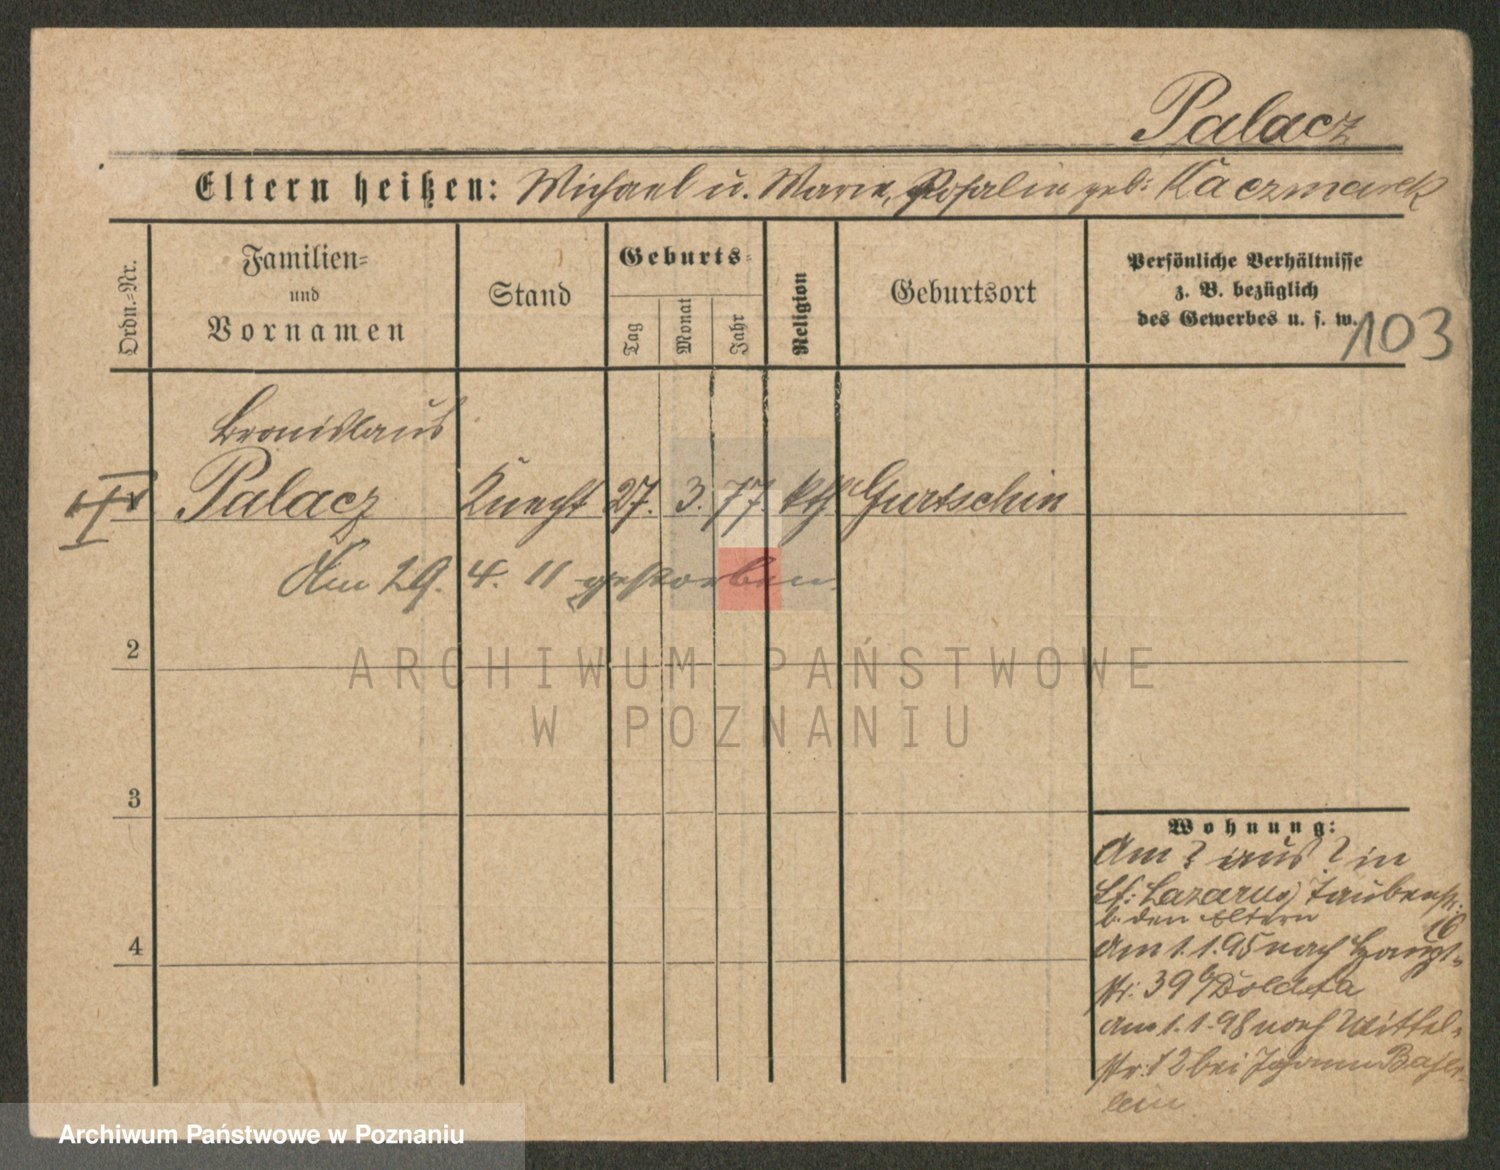 Palacz
Eltern heißen: Michael u. Marie, Rosalie geb: Kaczmarek
Ordn.=Nr.
Familien=
und
Vornamen
Stand
Geburts=
Tag
Monat
Jahr
Religion
Geburtsort
Persönliche Verhältnisse
z. B. bezüglich
des Gewerbes u. s. w.
103
Bronislaus
Palacz Knecht 27. 3. 77. kth Gurtschin
Am 29. 4. 11 gestorben.
2
3
4
Wohnung:
Am ? aus ? in
St: Lazarus, Taubenstr.
16
b. den Eltern
Am 1.1.95 nach Haupt=
str. 39 b/
am 1.1.98 nach Mittel=
str. 12 bei
ARCHIWUM PAŃSTWOWE
W POZNANIU
Archiwum Państwowe w Poznaniu